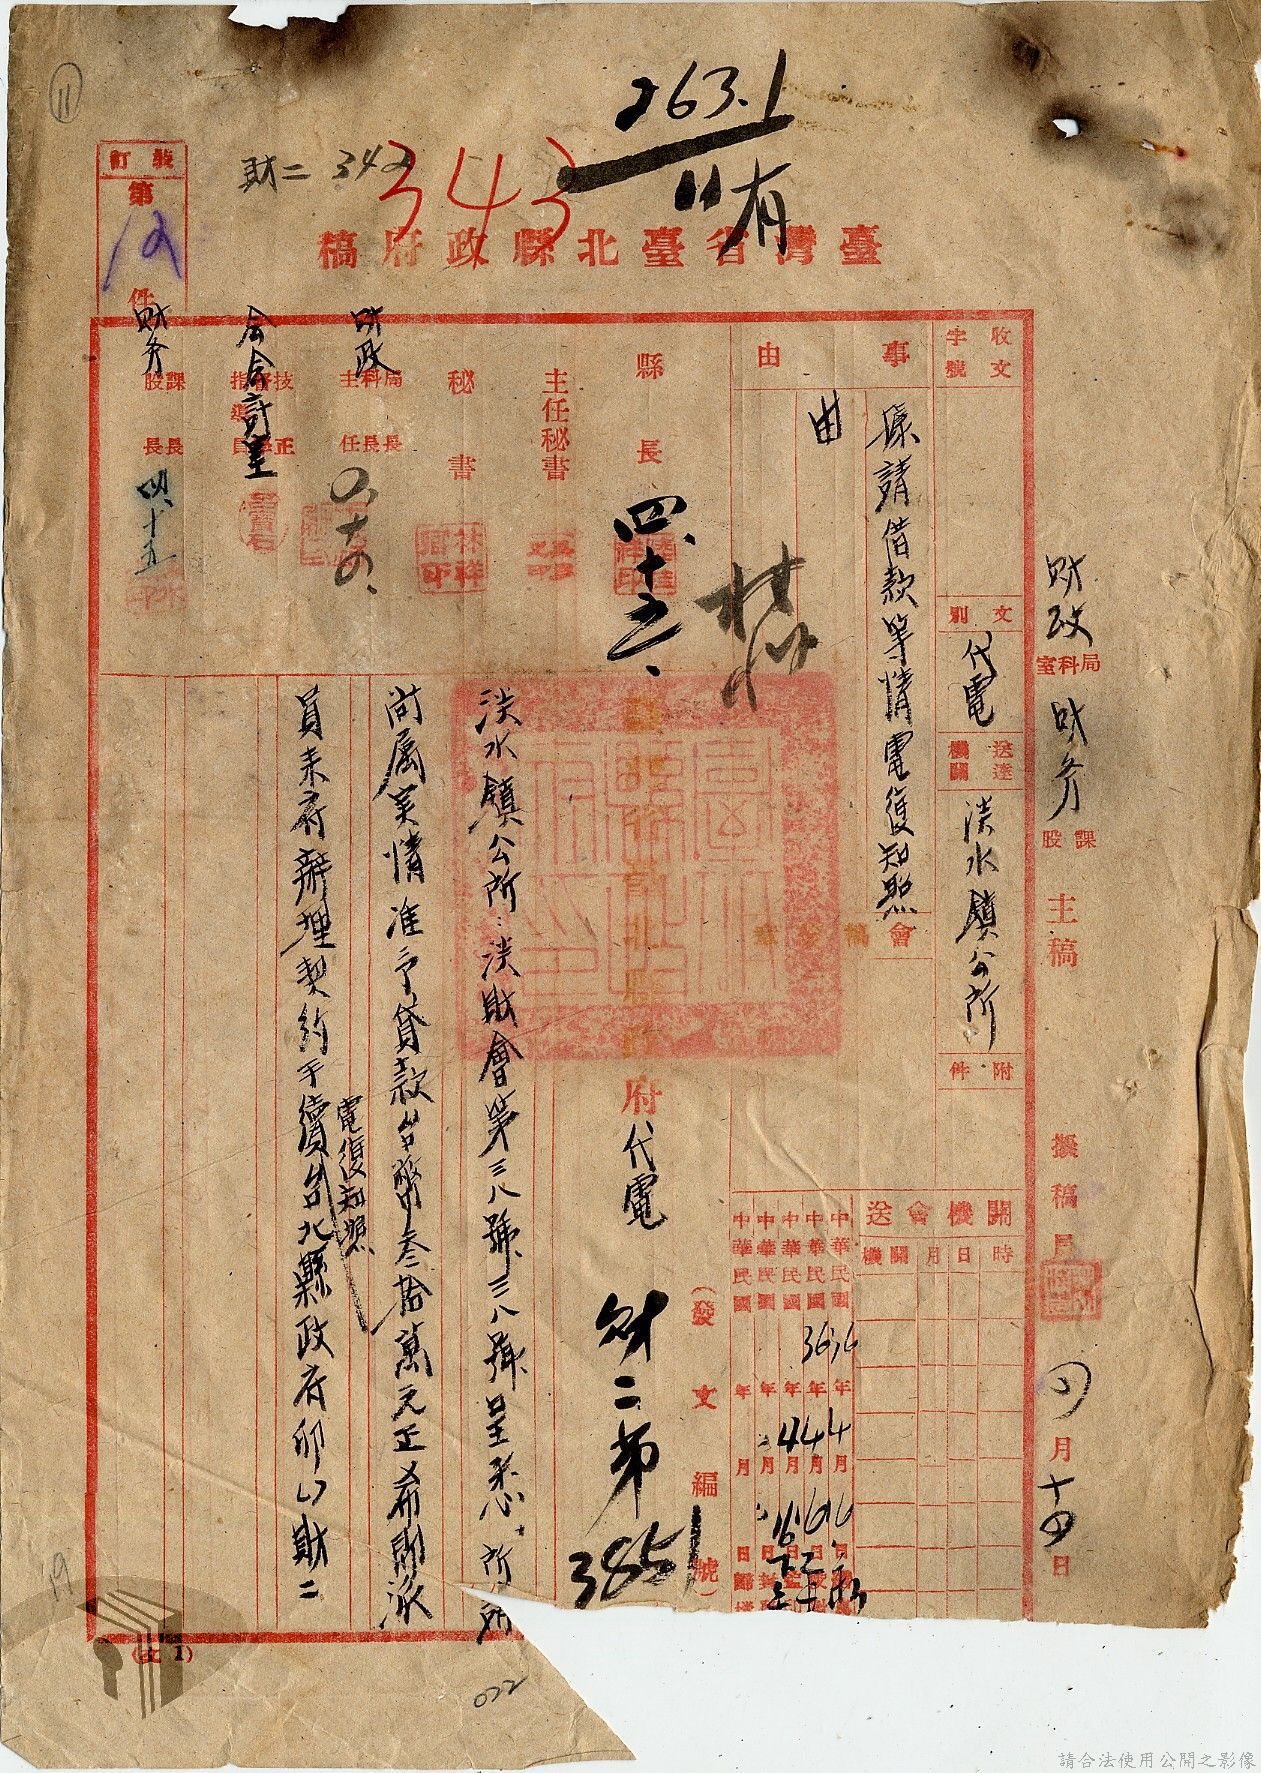 11
263.1
11
有
財二 342
343
裝訂
第
12
件
臺灣省臺北縣政府稿
財政
局科室
財務
課股
主稿
擬稿員
四月十四日
收文
字號
文別
代電
送達機關
淡水鎮公所
附件
事由
據請借款等情電復知照
由
會
關機會送
時
日
月
關機
中華民國36年4月16日
中華民國36年4月16日
中華民國 年4月16日
中華民國 年 月 日
中華民國 年 月 日
縣長
四、十五、
主任秘書
秘書
林祥官印
財政
局科主
長長任
四、十四、
技正
會會計室
財務
課股
長長
四、十五
府代電
財二第3851
(發文編號)
淡水鎮公所:淡財會第三八號、三八號呈悉、所
尚属実情准予貸款台幣叁拾萬元正希即派
員来府辦理契約手續台北縣政府卯 財二
電復知照
(文1)
19
022
請合法使用公開之影像